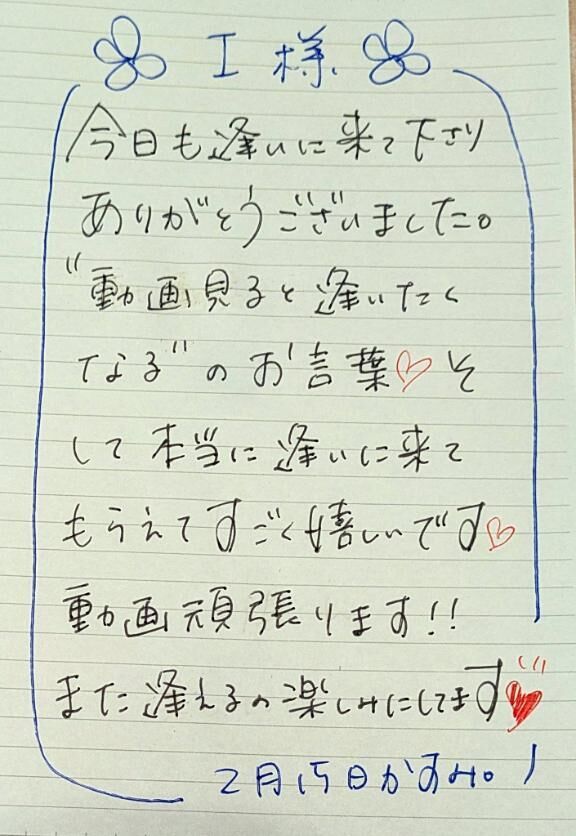 I様
今日も逢いに来て下さり
ありがとうございました。
"動画見ると逢いたく
なる"のお言葉♡そ
して本当に逢いに来て
もらえてすごく嬉しいです♡
動画頑張ります!!
また逢えるの楽しみにしてます♥
2月15日かすみ。